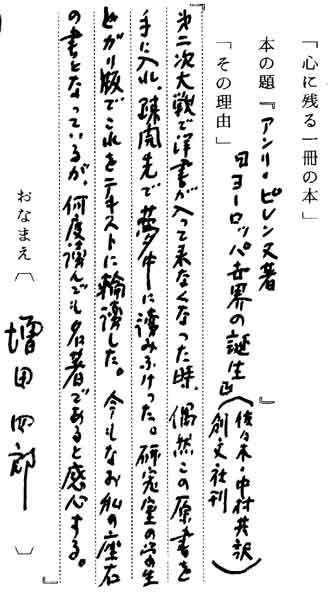 「心に残る一冊の本」
本の題『アンリ・ピレンヌ著
『ヨーロッパ世界の誕生』(佐々木・中村共訳
創文社刊)』
「その理由」
『第二次大戦で洋書が入って来なくなった時、偶然この原書を
手に入れ、疎開先で夢中に読みふけった。研究室の学生
とガリ版でこれをテキストに輪読した。今もなお私の座右
の書となっているが、何度読んでも名著であると感心する。』
おなまえ〔 増田四郎 〕